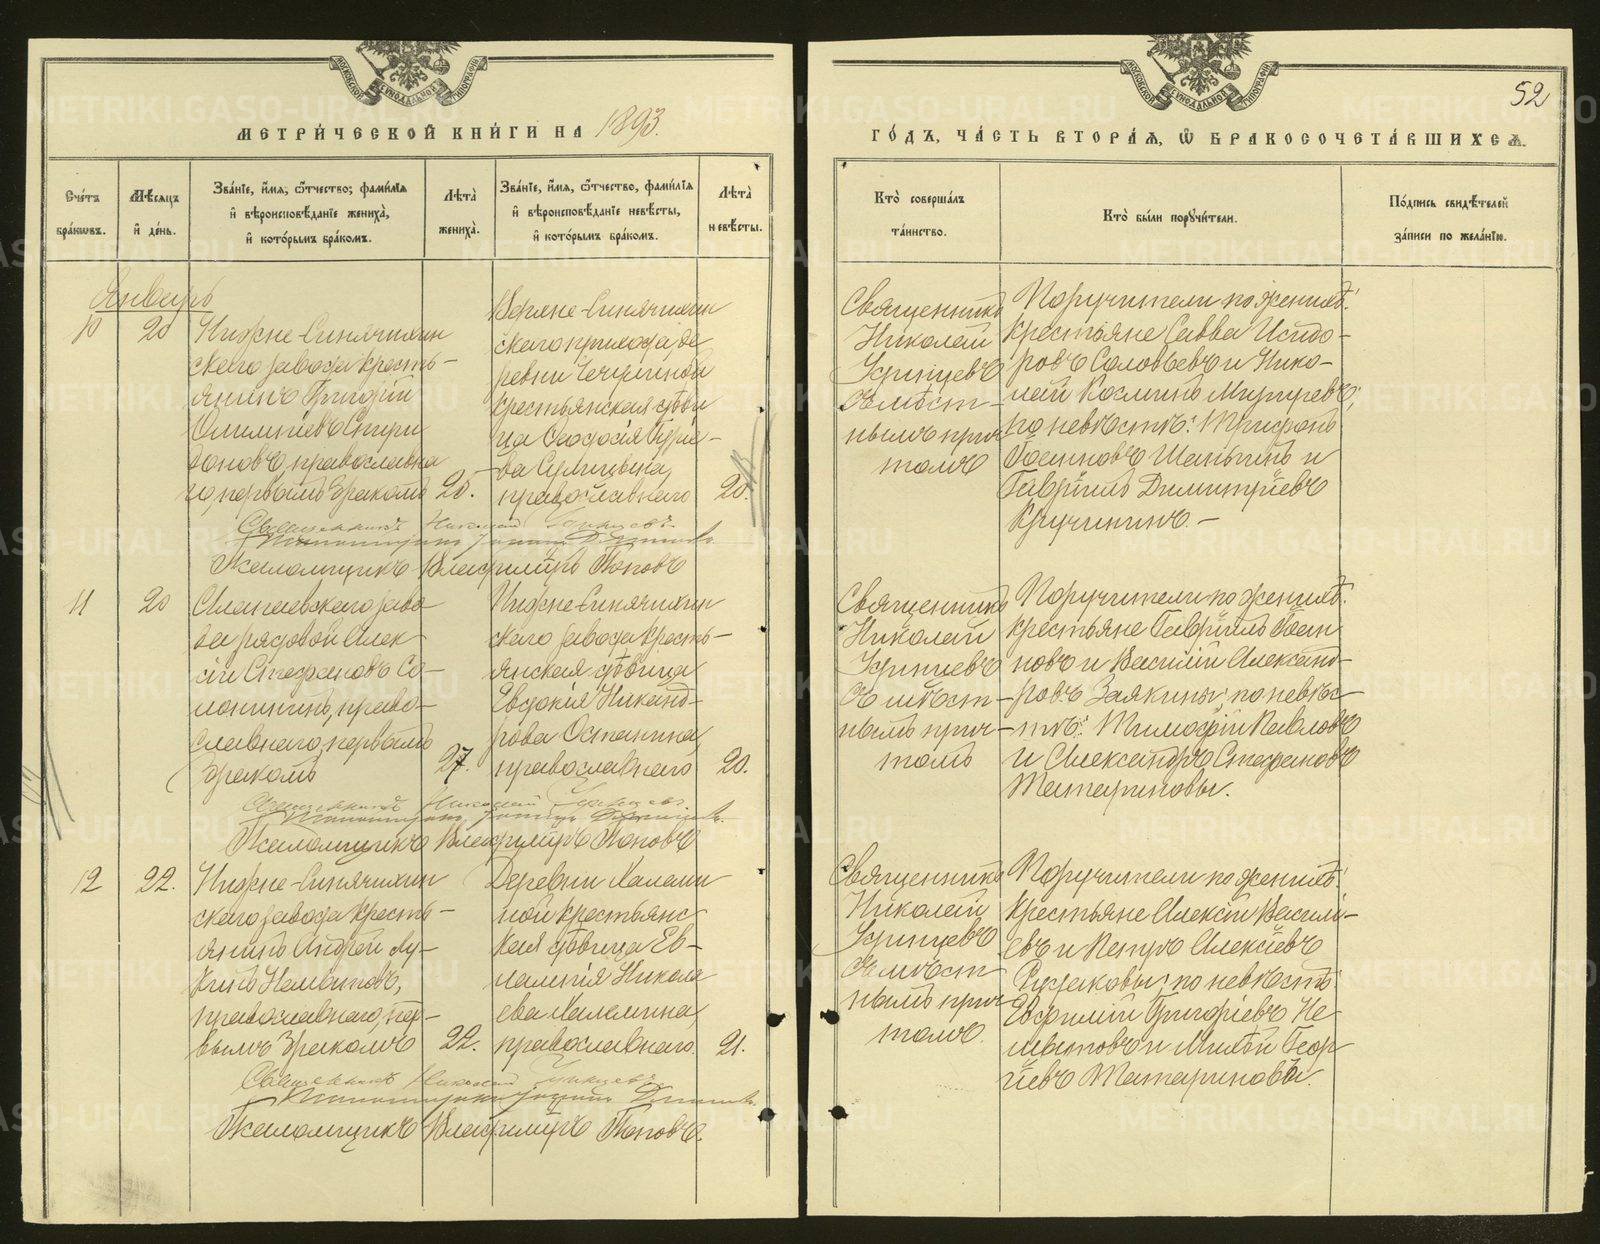 МЕТРИ́ЧЕСКОЙ КНИ́ГИ НА 1893.
Сче́тъ бра́кѡвъ.
Мѣ́сяцъ и҆ де́нь.
Зва́нїе, и҆́мя, ѻ҆́тчество, фами́лїя и҆ вѣроисповѣ́данїе жениха̀, и҆ кото́рымъ бра́комъ.
Лѣ́та̀ жениха̀.
Зва́нїе, и҆́мя, ѻ҆́тчество, фами́лїя и҆ вѣроисповѣ́данїе невѣ́сты, и҆ кото́рымъ бра́комъ.
Лѣ́та̀ невѣ́сты.
Январь
10
20
Нижне-Синячихин
скаго завода кресть-
янинъ Григорій
Олимпіевъ Спири
доновъ, православна
го, первымъ бракомъ
20.
Верхне-Синячихин
скаго прихода, де
ревни
крестьянская дѣви
ца Ѳеодосія Гурье-
ва
православнаго
20.
Священникъ Николай Удинцевъ.
Псаломщикъ Владиміръ Поповъ
11
20
Алапаевскаго заво
да рядовой Алек
сій Стефановъ Со-
лонининъ, право-
славнаго, первымъ
бракомъ
27.
Нижне-Синячихин
скаго завода кресть-
янская дѣвица
Евдокія Никанд-
рова Останина,
православнаго
20.
Священникъ Николай Удинцевъ.
Псаломщикъ Владиміръ Поповъ
12
22.
Нижне-Синячихин
скаго завода кресть-
янинъ Андрей Лу-
кинъ Неминтовъ,
православнаго, пер-
вымъ бракомъ
22.
Деревни Халеми
ной крестьянс
кая дѣвица Ев-
лампія Никола
ева Халемина,
православнаго.
21.
Священникъ Николай Удинцевъ.
Псаломщикъ Владиміръ Поповъ.
52
ГО́ДЪ, ЧА́СТЬ ВТОРА́Я, Ѽ БРАКОСОЧЕТА́ВШИХСЯ.
Кто̀ соверша́лъ та́инство.
Кто̀ бы́ли поручи́тели.
По́дпись свидѣ́телей за́писи по жела́нїю.
Священникъ
Николай
Удинцевъ
съ мѣст-
нымъ прич
томъ
Поручители по женихѣ:
крестьяне Савва Исидо-
ровъ Соловьевъ и Нико-
лай Косминъ Мурзевъ;
по невѣстѣ: Трифонъ
Іоанновъ Шаньгинъ и
Гавріилъ Димитріевъ
Кручининъ.-
Священникъ
Николай
Удинцевъ
съ мѣст-
нымъ прич-
томъ
Поручители по женихѣ:
крестьяне Гавріилъ Іоан
новъ и Василій Александ-
ровъ Заякины; по невѣс-
тѣ: Тимоѳей Павловъ
и Александръ Стефановъ
Татариновы.
Священникъ
Николай
Удинцевъ
съ мѣст
нымъ прич
томъ.
Поручители по женихѣ:
крестьяне Алексій Василі-
евъ и Алексіевъ
Русаковы; по невѣстѣ
Евфимій Григоріевъ Не
минтовъ и Михей Геор
гіевъ Татариновы.
METRIKI.GASO-URAL.RU